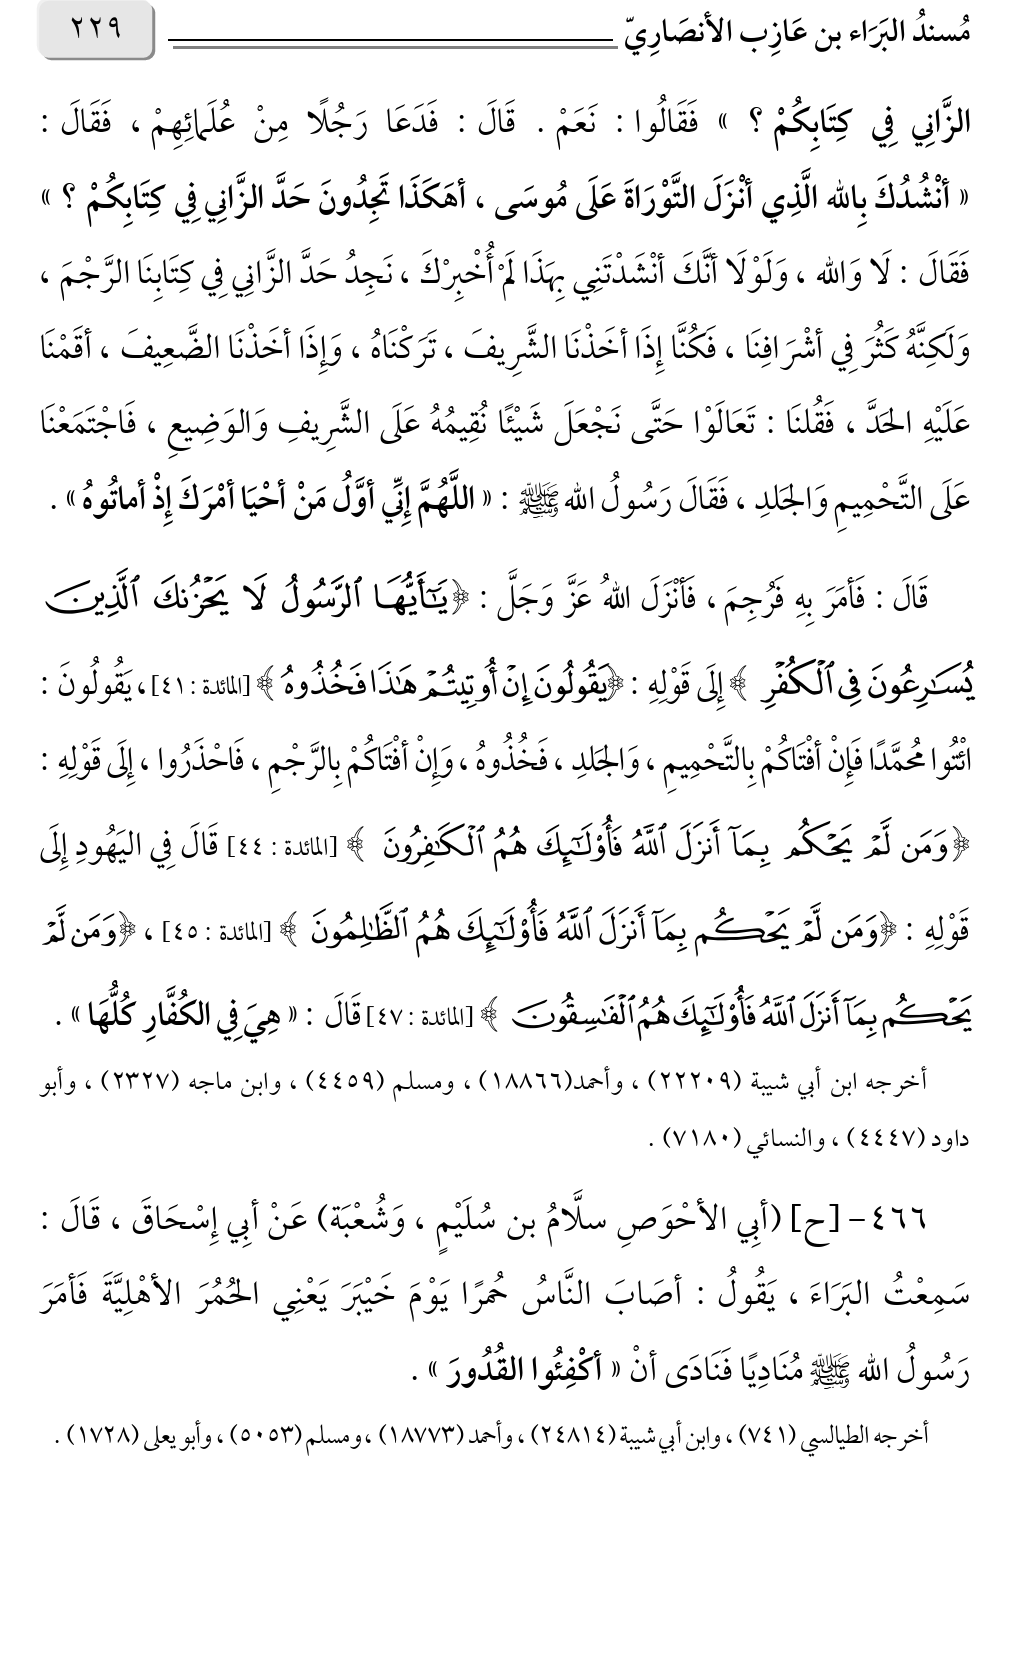 مُسندُ البَرَاء بن عَازِب الأنصَارِيّ ٢٢٩
الزَّانِي فِي كِتَابِكُمْ ؟ » فَقَالُوا : نَعَمْ . قَالَ : فَدَعَا رَجُلًا مِنْ عُلَمائِهِمْ ، فَقَالَ :
« أنْشُدُكَ بِالله الَّذِي أنْزَلَ التَّوْرَاةَ عَلَى مُوسَى ، أهَكَذَا تَجِدُونَ حَدَّ الزَّانِي فِي كِتَابِكُمْ ؟ »
فَقَالَ : لَا وَالله ، وَلَوْلَا أنَّكَ أنْشَدْتَنِي بِهَذَا لَمْ أُخْبِرْكَ ، نَجِدُ حَدَّ الزَّانِي فِي كِتَابِنَا الرَّجْمَ ،
وَلَكِنَّهُ كَثُرَ فِي أشْرَافِنَا ، فَكُنَّا إِذَا أخَذْنَا الشَّرِيفَ ، تَرَكْنَاهُ ، وَإِذَا أخَذْنَا الضَّعِيفَ ، أقَمْنَا
عَلَيْهِ الحَدَّ ، فَقُلنَا : تَعَالَوْا حَتَّى نَجْعَلَ شَيْئًا نُقِيمُهُ عَلَى الشَّرِيفِ وَالوَضِيعِ ، فَاجْتَمَعْنَا
عَلَى التَّحْمِيمِ وَالجَلدِ ، فَقَالَ رَسُولُ الله ﷺ : « اللَّهُمَّ إِنِّي أوَّلُ مَنْ أحْيَا أمْرَكَ إِذْ أماتُوهُ » .
قَالَ : فَأمَرَ بِهِ فَرُجِمَ ، فَأنْزَلَ اللهُ عَزَّ وَجَلَّ : ﴿يَـٰٓأَيُّهَا ٱلرَّسُولُ لَا يَحْزُنكَ ٱلَّذِينَ
يُسَـٰرِعُونَ فِى ٱلْكُفْرِ ﴾ إِلَى قَوْلِهِ : ﴿يَقُولُونَ إِنْ أُوتِيتُمْ هَـٰذَا فَخُذُوهُ ﴾ [المائدة : ٤١] ، يَقُولُونَ :
ائْتُوا مُحَمَّدًا فَإِنْ أفْتَاكُمْ بِالتَّحْمِيمِ ، وَالجَلدِ ، فَخُذُوهُ ، وَإِنْ أفْتَاكُمْ بِالرَّجْمِ ، فَاحْذَرُوا ، إِلَى قَوْلِهِ :
﴿وَمَن لَّمْ يَحْكُم بِمَآ أَنزَلَ ٱللَّهُ فَأُوْلَـٰٓئِكَ هُمُ ٱلْكَـٰفِرُونَ ﴾ [المائدة : ٤٤] قَالَ فِي اليَهُودِ إِلَى
قَوْلِهِ : ﴿وَمَن لَّمْ يَحْكُم بِمَآ أَنزَلَ ٱللَّهُ فَأُوْلَـٰٓئِكَ هُمُ ٱلظَّـٰلِمُونَ ﴾ [المائدة : ٤٥] ، ﴿وَمَن لَّمْ
يَحْكُم بِمَآ أَنزَلَ ٱللَّهُ فَأُوْلَـٰٓئِكَ هُمُ ٱلْفَـٰسِقُونَ ﴾ [المائدة : ٤٧] قَالَ : « هِيَ فِي الكُفَّارِ كُلُّهَا » .
أخرجه ابن أبي شيبة (٢٢٢٠٩) ، وأحمد(١٨٨٦٦) ، ومسلم (٤٤٥٩) ، وابن ماجه (٢٣٢٧) ، وأبو
داود (٤٤٤٧) ، والنسائي (٧١٨٠) .
٤٦٦ – [ح] (أبِي الأحْوَصِ سلَّامُ بن سُلَيْمٍ ، وَشُعْبَة) عَنْ أبِي إِسْحَاقَ ، قَالَ :
سَمِعْتُ البَرَاءَ ، يَقُولُ : أصَابَ النَّاسُ حُمرًا يَوْمَ خَيْبَرَ يَعْنِي الحُمُرَ الأهْلِيَّةَ فَأمَرَ
رَسُولُ الله ﷺ مُنَادِيًا فَنَادَى أنْ « أكْفِئُوا القُدُورَ » .
أخرجه الطيالسي (٧٤١) ، وابن أبي شيبة (٢٤٨١٤) ، وأحمد (١٨٧٧٣) ، ومسلم (٥٠٥٣) ، وأبو يعلى (١٧٢٨) .